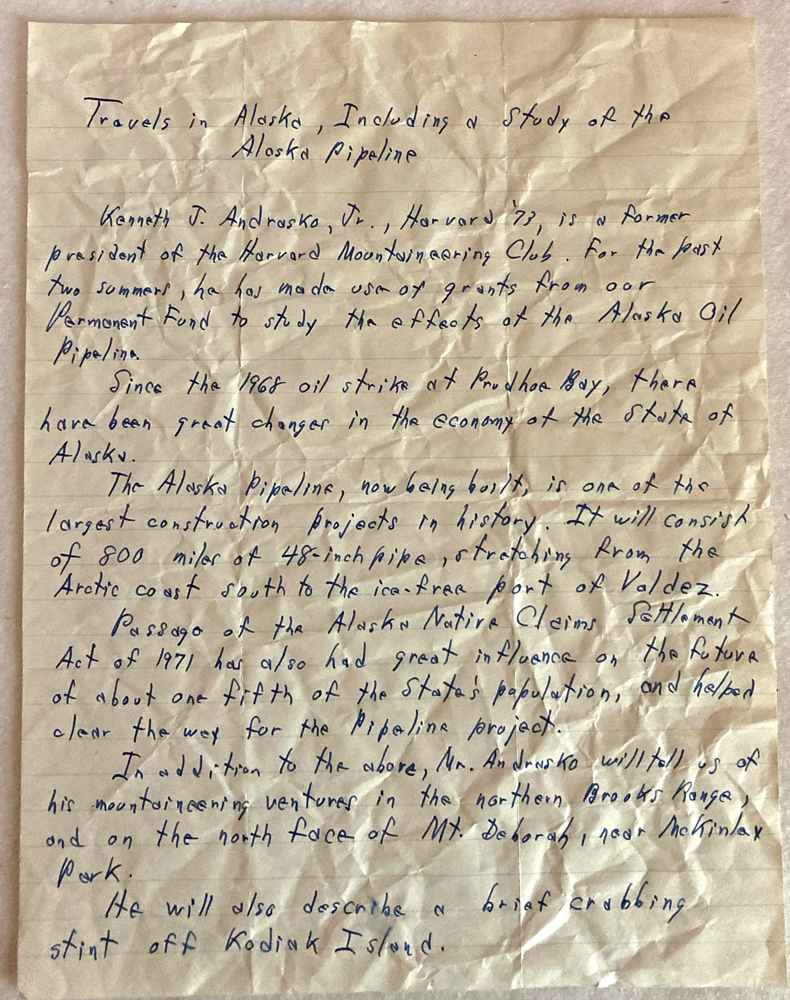 Travels in Alaska, Including a Study of the
Alaska Pipeline
Kenneth J. Andrasko, Jr., Harvard '73, is a former
president of the Harvard Mountaineering Club. For the past
two summers, he has made use of grants from our
Permanent Fund to study the effects of the Alaska Oil
Pipeline.
Since the 1968 oil strike at Prudhoe Bay, there
have been great changes in the economy of the State of
Alaska.
The Alaska Pipeline, now being built, is one of the
largest construction projects in history. It will consist
of 800 miles of 48-inch pipe, stretching from the
Arctic coast south to the ice-free port of Valdez.
Passage of the Alaska Native Claims Settlement
Act of 1971 has also had great influence on the future
of about one fifth of the State's population, and helped
clear the way for the Pipeline project.
In addition to the above, Mr. Andrasko will tell us of
his mountaineering ventures in the northern Brooks Range,
and on the north face of Mt. Deborah, near McKinley
Park.
He will also describe a brief crabbing
stint off Kodiak Island.